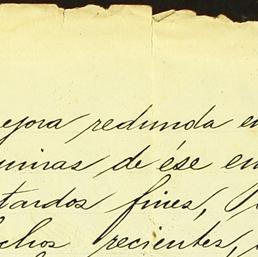 ejora redunda en
de ése en
tardos fines,
chos recientes,